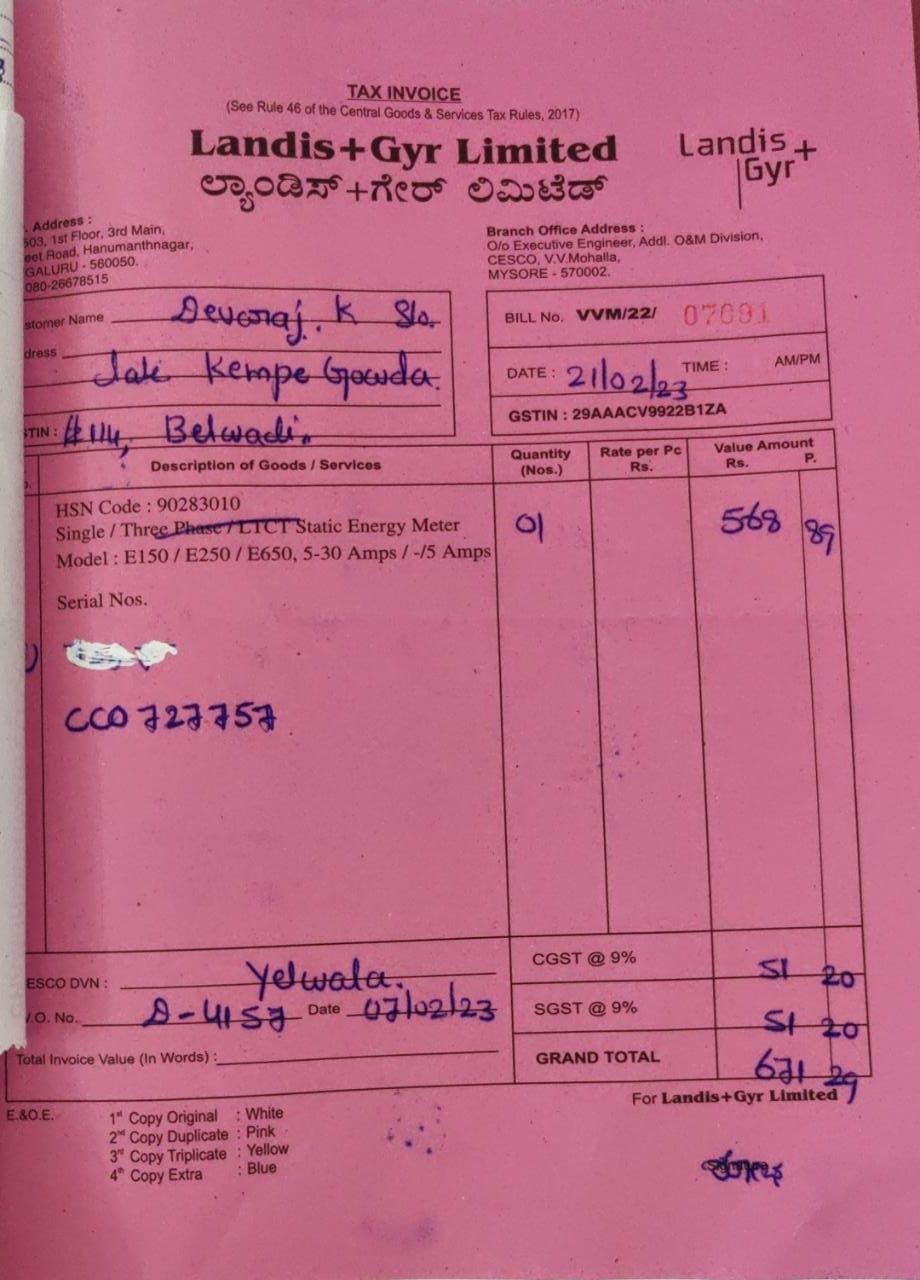 TAX INVOICE
(See Rule 46 of the Central Goods & Services Tax Rules, 2017)
Landis+Gyr Limited
ಲ್ಯಾಂಡಿಸ್+ಗೇರ್ ಲಿಮಿಟೆಡ್
Landis+
Gyr
. Address :
503, 1st Floor, 3rd Main,
eet Road, Hanumanthnagar,
GALURU - 560050.
080-26678515
Branch Office Address :
O/o Executive Engineer, Addl. O&M Division,
CESCO, V.V.Mohalla,
MYSORE - 570002.
stomer Name Devaraj. K S/o.
dress
Late Kempe Gowda.
STIN : #114, Belwadi.
BILL No. VVM/22/ 07691
DATE : 21/02/23 TIME : AM/PM
GSTIN : 29AAACV9922B1ZA
Description of Goods / Services Quantity (Nos.) Rate per Pc Rs. Value Amount Rs. P.
HSN Code : 90283010
Single / Three Phase / LTCT Static Energy Meter 01 568 89
Model : E150 / E250 / E650, 5-30 Amps / -/5 Amps
Serial Nos.
CC0727757
ESCO DVN : Yelwala. CGST @ 9% 51 20
.O. No. D-4157 Date 07/02/23 SGST @ 9% 51 20
Total Invoice Value (In Words) : GRAND TOTAL 671 29
For Landis+Gyr Limited
E.&O.E. 1st Copy Original : White
2nd Copy Duplicate : Pink
3rd Copy Triplicate : Yellow
4th Copy Extra : Blue